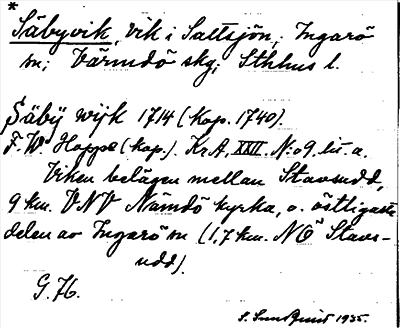 *
Säbyvik, vik i Saltsjön; Ingarö
sn; Värmdö skg; Sthlms l.
Säbÿ wijk 1714 (kop. 1740).
F. W. Hoppe (kop.). Kr.A. XXII. N:o 9. lit. a.
Viken belägen mellan Stavsudd,
9 km. VNV Nämdö kyrka, o. östligaste
delen av Ingarö sn (1,7 km. NÖ Stavs-
udd).
G. 76.
S. Sundquist 1935.